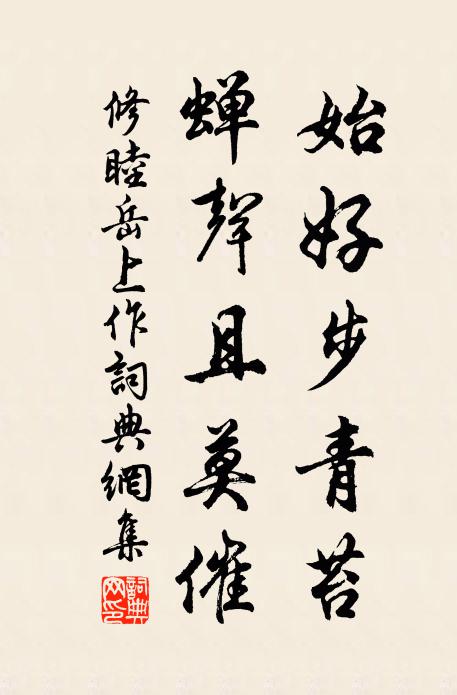 始好步青苔
蟬聲且莫催
修睦岳上作詞典網集
詞典网印